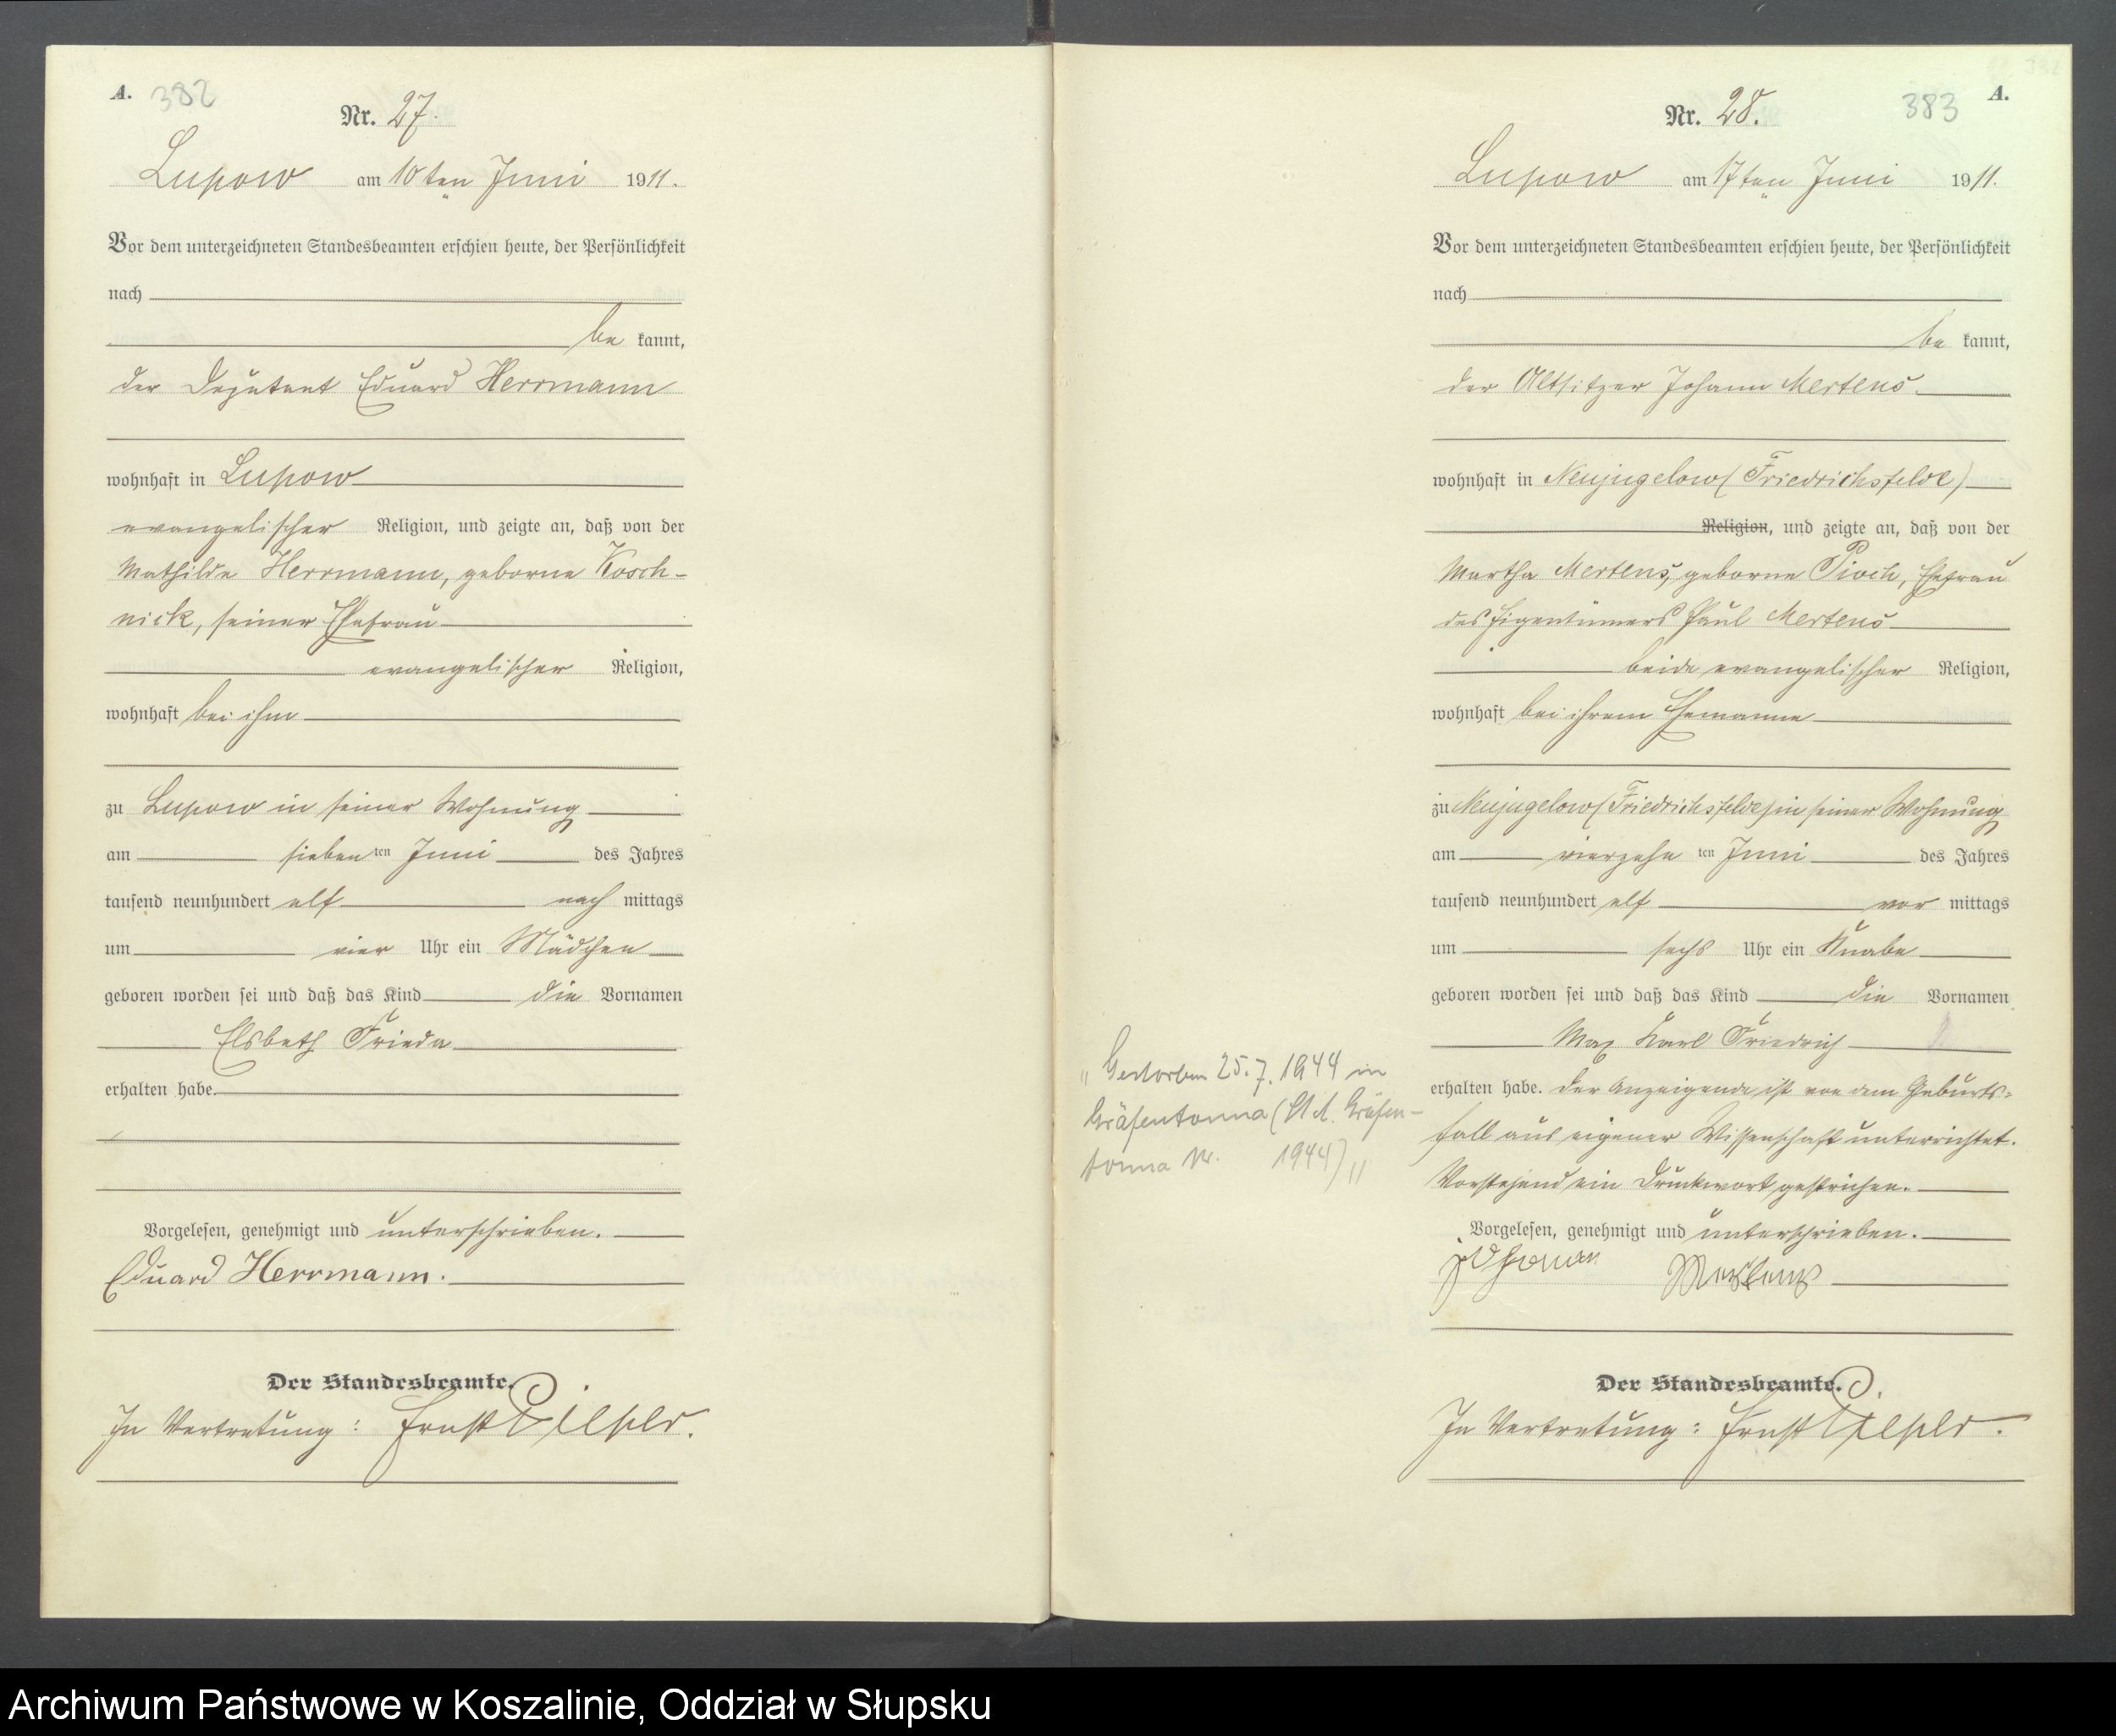 A. 382
Nr. 27.
Lupow am 10ten Juni 1911.
Vor dem unterzeichneten Standesbeamten erschien heute, der Persönlichkeit
nach
be kannt,
der Deputant Eduard Herrmann
wohnhaft in Lupow
evangelischer Religion, und zeigte an, daß von der
Mathilde Herrmann, geborne Kosch-
nick, seiner Ehefrau
evangelischer Religion,
wohnhaft bei ihm
zu Lupow in seiner Wohnung
am sieben ten Juni des Jahres
tausend neunhundert elf nach mittags
um vier Uhr ein Mädchen
geboren worden sei und daß das Kind die Vornamen
Elsbeth Frieda
erhalten habe.
Vorgelesen, genehmigt und unterschrieben.
Eduard Herrmann.
Der Standesbeamte.
In Vertretung: Ernst
383 A.
Nr. 28.
Lupow am 17ten Juni 1911.
Vor dem unterzeichneten Standesbeamten erschien heute, der Persönlichkeit
nach
be kannt,
der Altsitzer Johann Mertens.
wohnhaft in Neujugelow (Friedrichsfelde)
Religion, und zeigte an, daß von der
Martha Mertens, geborne Pioch, Ehefrau
des Eigentümers Paul Mertens
beide evangelischer Religion,
wohnhaft bei ihrem Ehemanne
zu Neujugelow (Friedrichsfelde) in seiner Wohnung
am vierzehn ten Juni des Jahres
tausend neunhundert elf vor mittags
um sechs Uhr ein Knabe
geboren worden sei und daß das Kind die Vornamen
Max Karl Friedrich
erhalten habe. Der Anzeigende ist von dem Geburts-
fall aus eigener Wissenschaft unterrichtet.
Vorstehend ein Druckwort gestrichen.
Vorgelesen, genehmigt und unterschrieben.
Johann Mertens
Der Standesbeamte.
In Vertretung: Ernst
"Gestorben 25.7.1944 in
Gräfentonna (St.A. Gräfen-
tonna Nr. 1944)"
Archiwum Państwowe w Koszalinie, Oddział w Słupsku